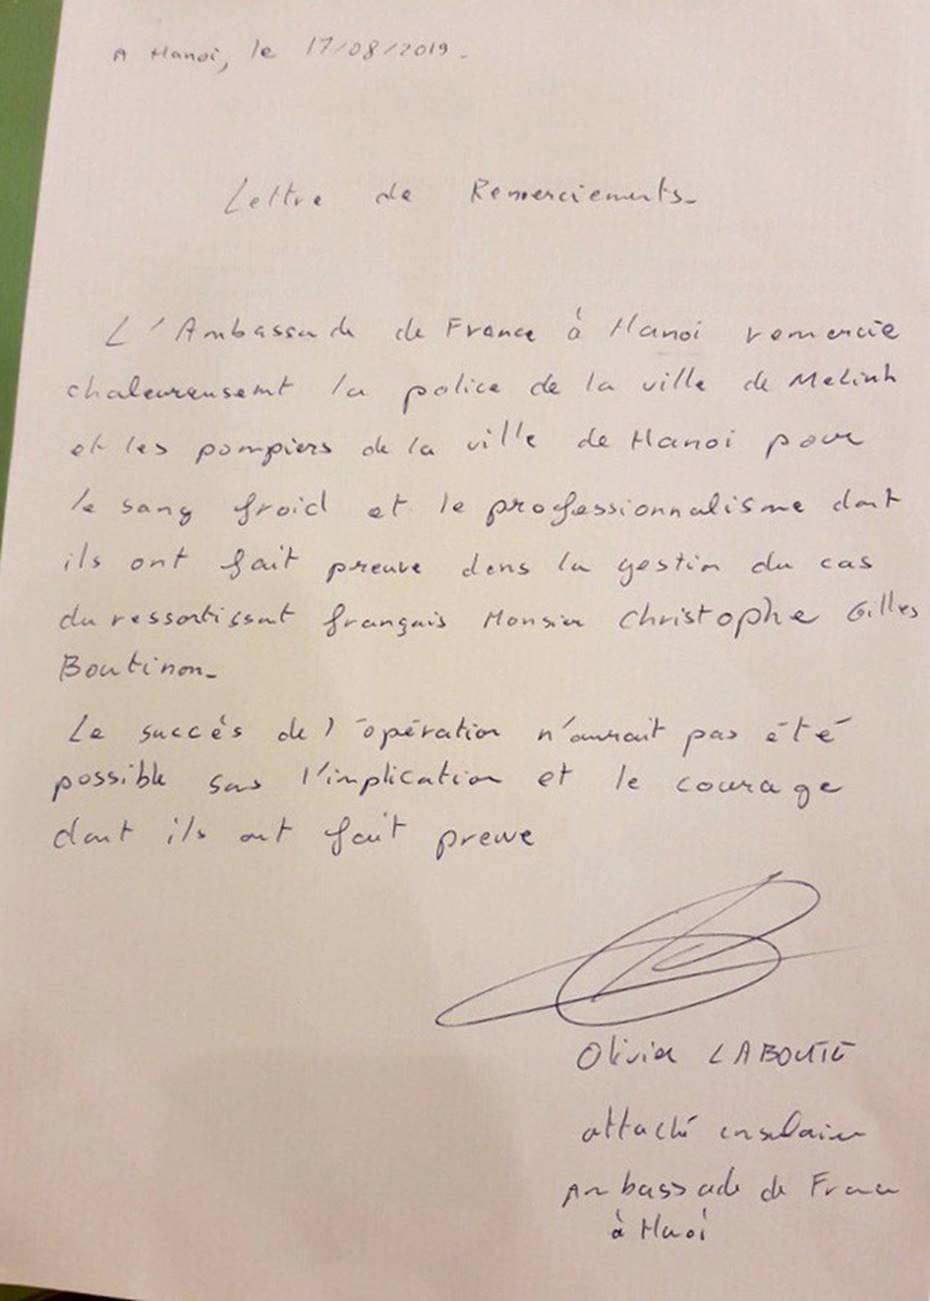 A Hanoi, le 17/08/2019.
Lettre de Remerciements_
L'Ambassade de France à Hanoi remercie
chaleureusemt la police de la ville de Melinh
et les pompiers de la ville de Hanoi pour
le sang froid et le professionnalisme dont
ils ont fait preuve dans la gestion du cas
du ressortissant français Monsieur Christophe Gilles
Boutinon_
Le succès de l'opération n'aurait pas été
possible sans l'implication et le courage
dont ils ont fait preuve
Olivier
attaché consulaire
Ambassade de France
à Hanoi